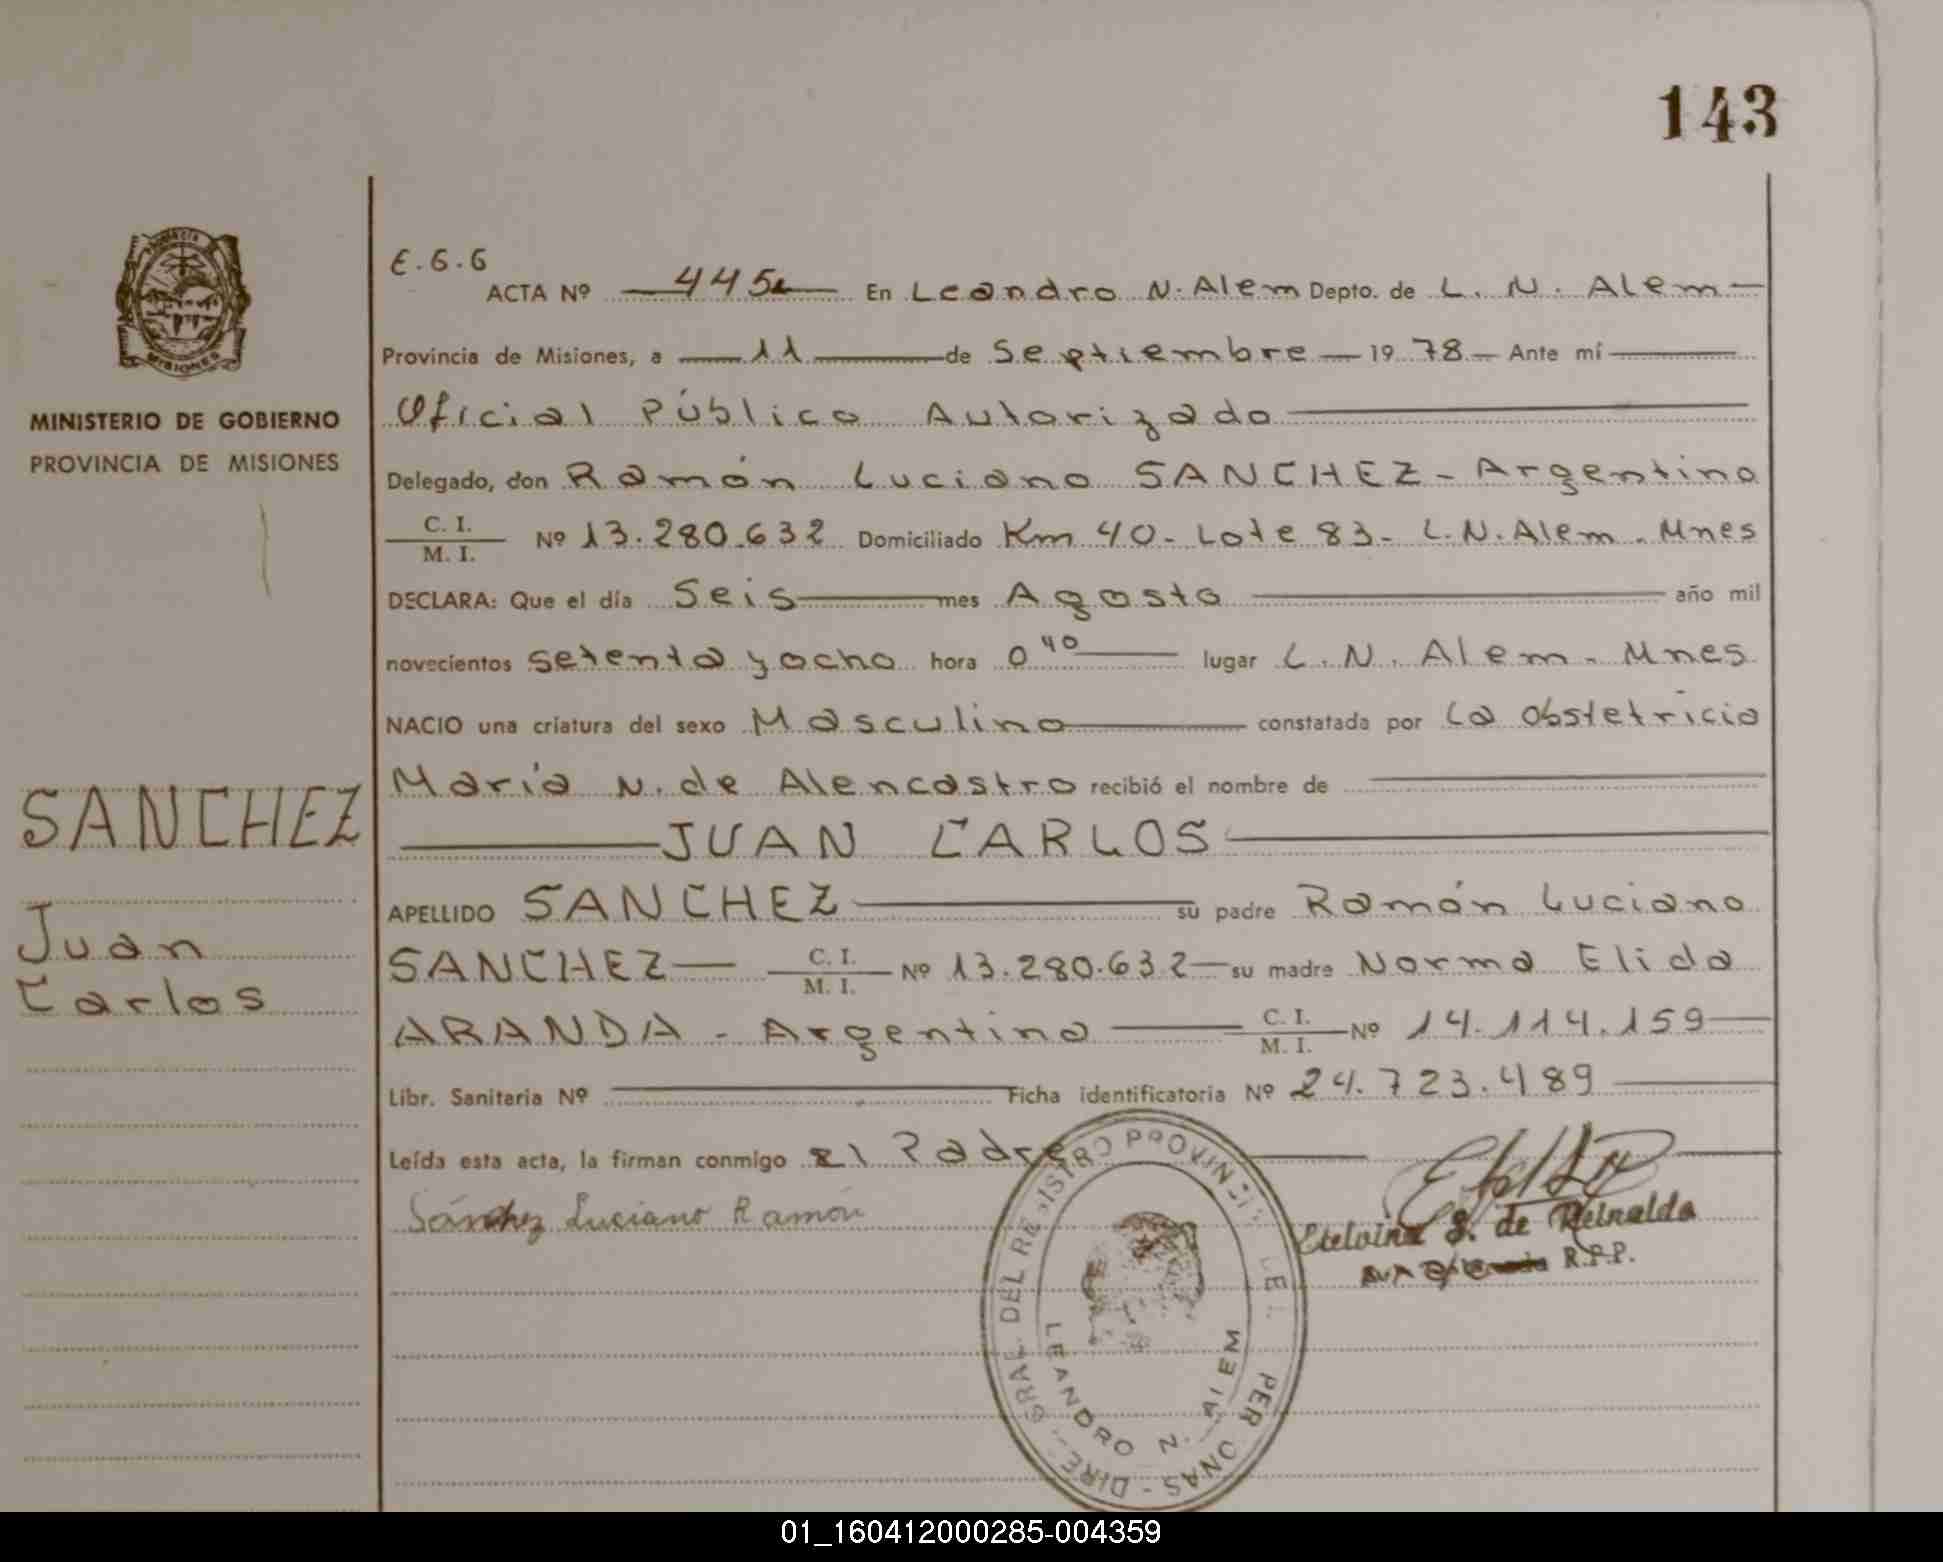 143
E.G.G
ACTA Nº 445 En Leandro N. Alem Depto. de L. N. Alem
Provincia de Misiones, a 11 de Septiembre 1978 Ante mí
Oficial Público Autorizado
Delegado, don Ramón Luciano SANCHEZ - Argentino
C. I.
M. I. Nº 13.280.632 Domiciliado Km 40 - Lote 83 - L.N. Alem - Mnes
DECLARA: Que el día Seis mes Agosto año mil
novecientos setenta y ocho hora 0 40 lugar L. N. Alem - Mnes
NACIO una criatura del sexo Masculino constatada por La Obstetricia
María N. de Alencastro recibió el nombre de
JUAN CARLOS
APELLIDO SANCHEZ su padre Ramón Luciano
SANCHEZ C. I.
M. I. Nº 13.280.632 su madre Norma Elida
ARANDA - Argentina C. I.
M. I. Nº 14.114.159
Libr. Sanitaria Nº Ficha identificatoria Nº 24.723.489
Leída esta acta, la firman conmigo El Padre
Sánchez Luciano Ramón
Etelvina S. de Reinalda
R.P.P.
PROVINCIA
MISIONES
MINISTERIO DE GOBIERNO
PROVINCIA DE MISIONES
SANCHEZ
Juan
Carlos
GRAL. DEL REGISTRO PROVINCIAL DE
PERSONAS
LEANDRO N. ALEM
01_160412000285-004359